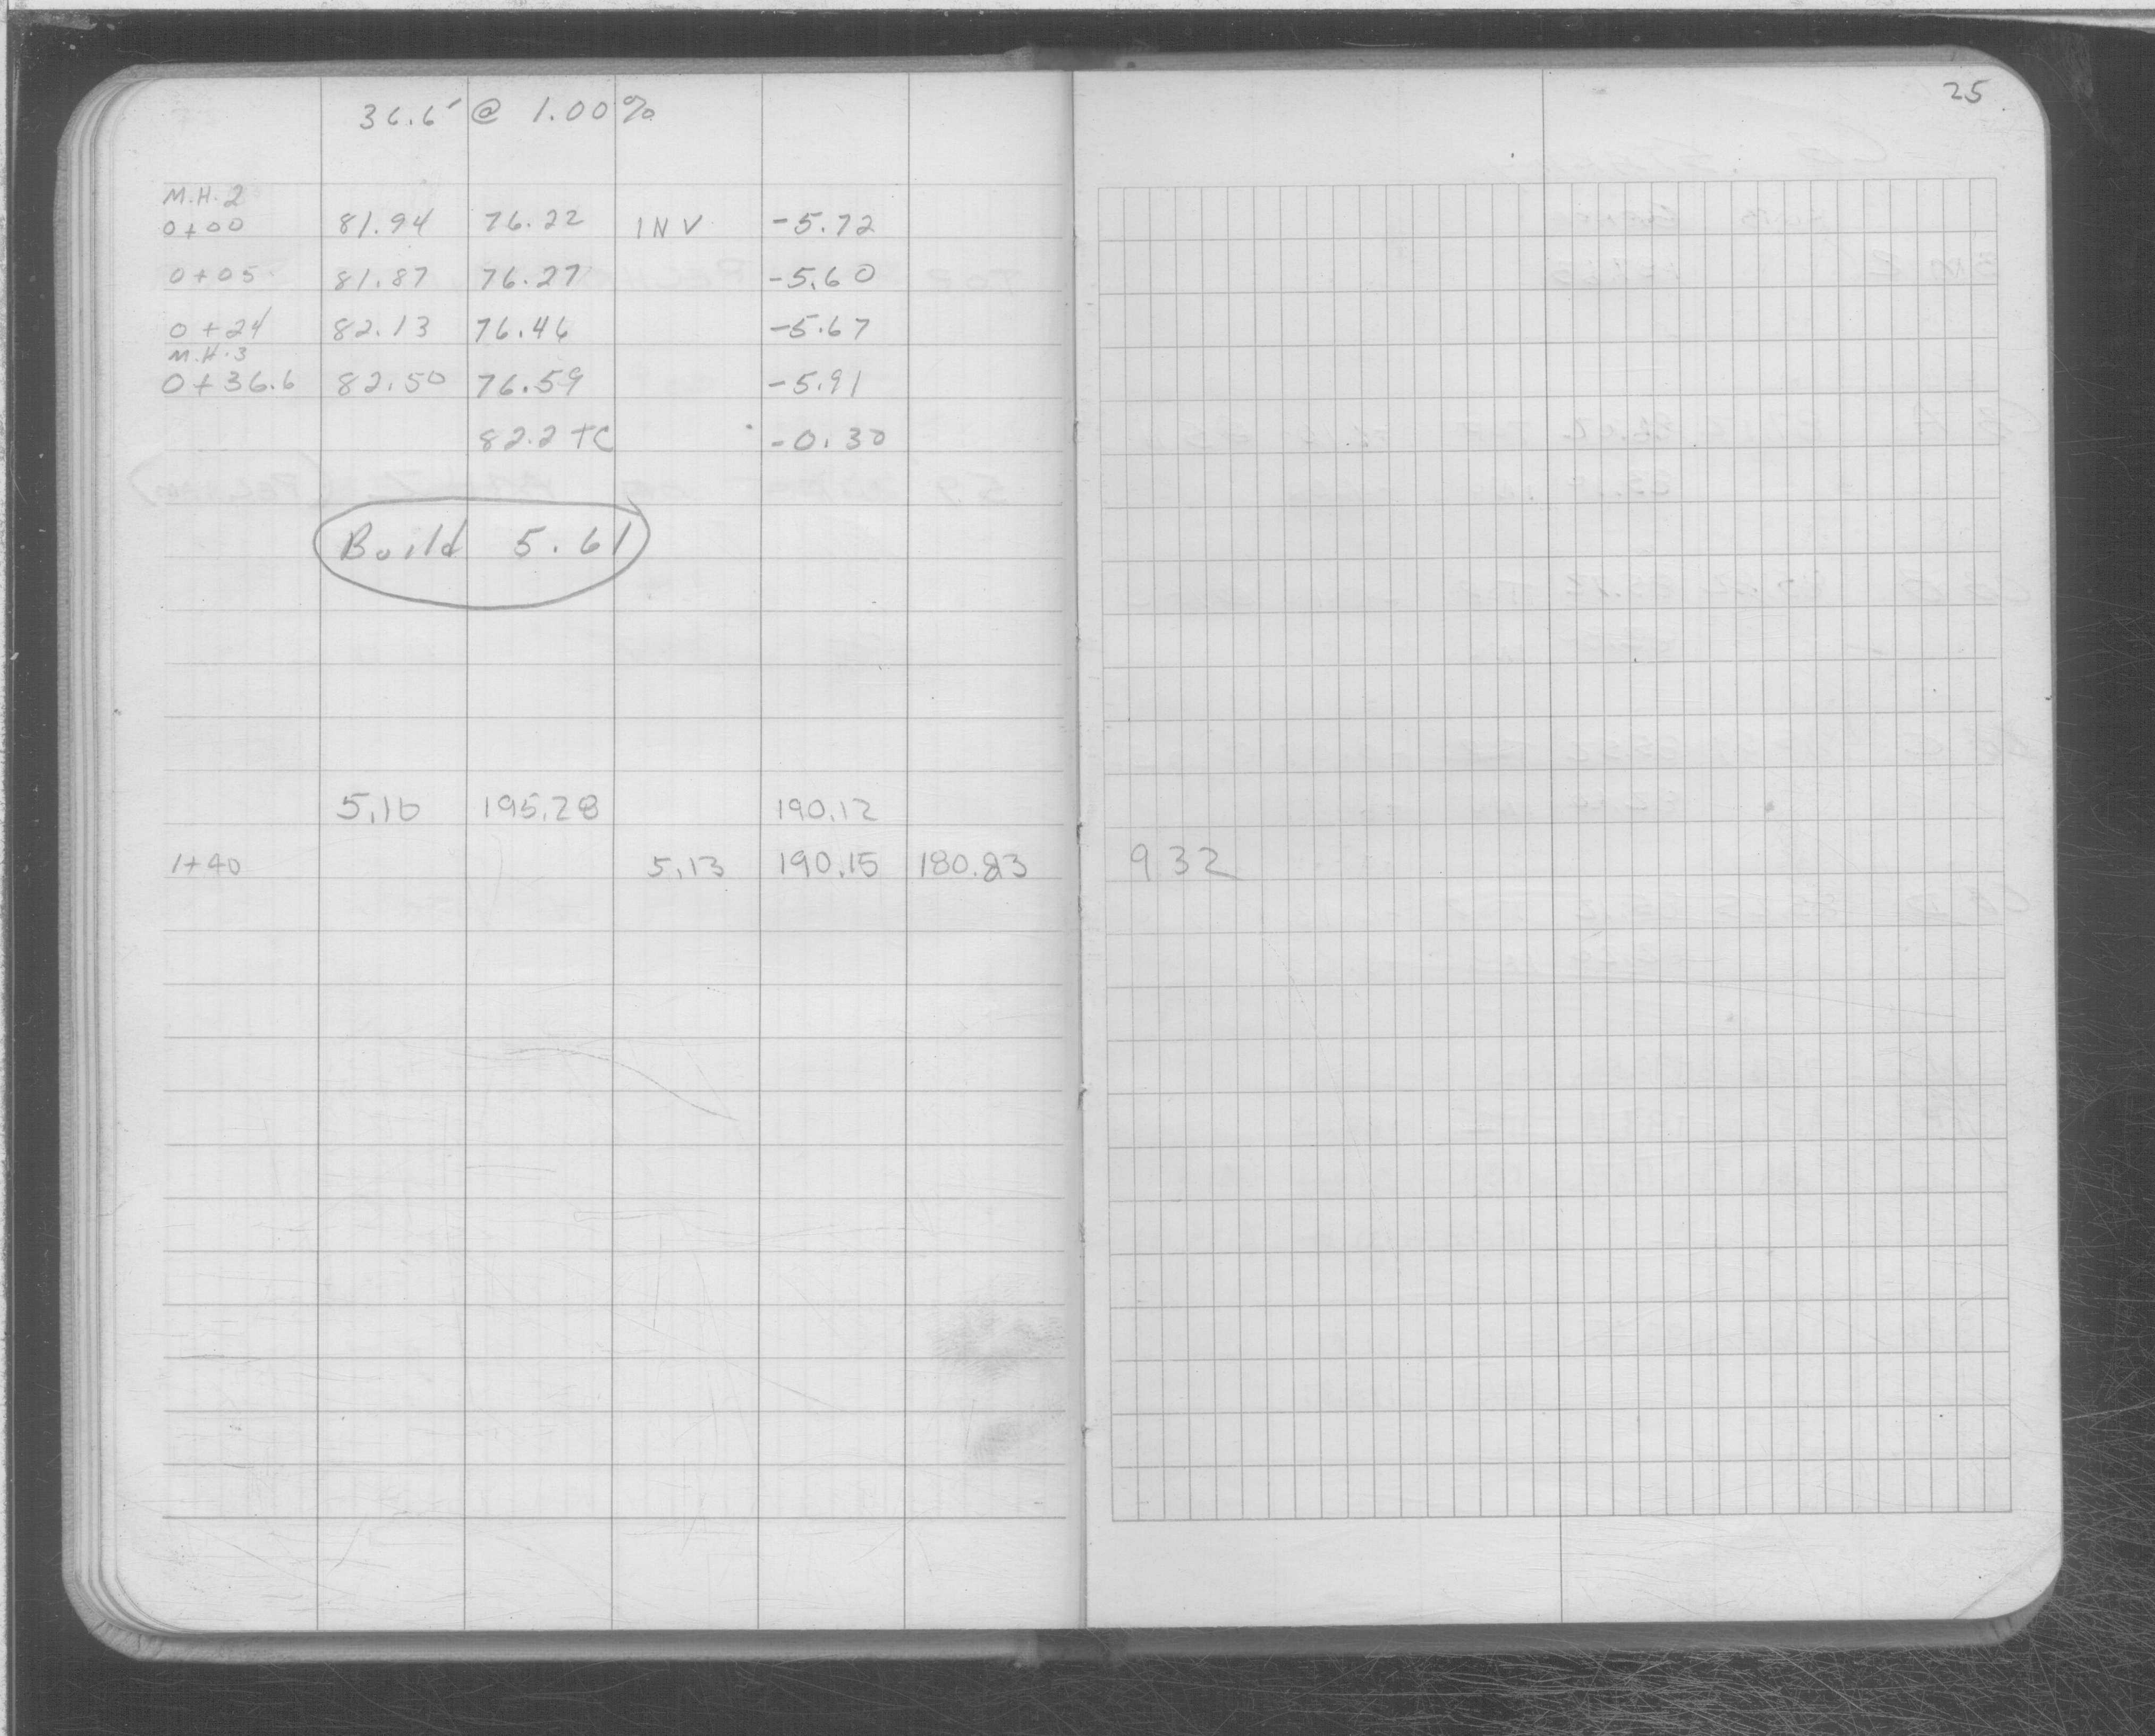 25
36.6' @ 1.00%
M.H.2
0+00 81.94 76.22 INV -5.72
0+05 81.87 76.27 -5.60
0+24 82.13 76.46 -5.67
M.H.3
0+36.6 82.50 76.59 -5.91
82.2 TC -0.30
Build 5.61
5.16 195.28 190.12
1+40 5.13 190.15 180.83 932